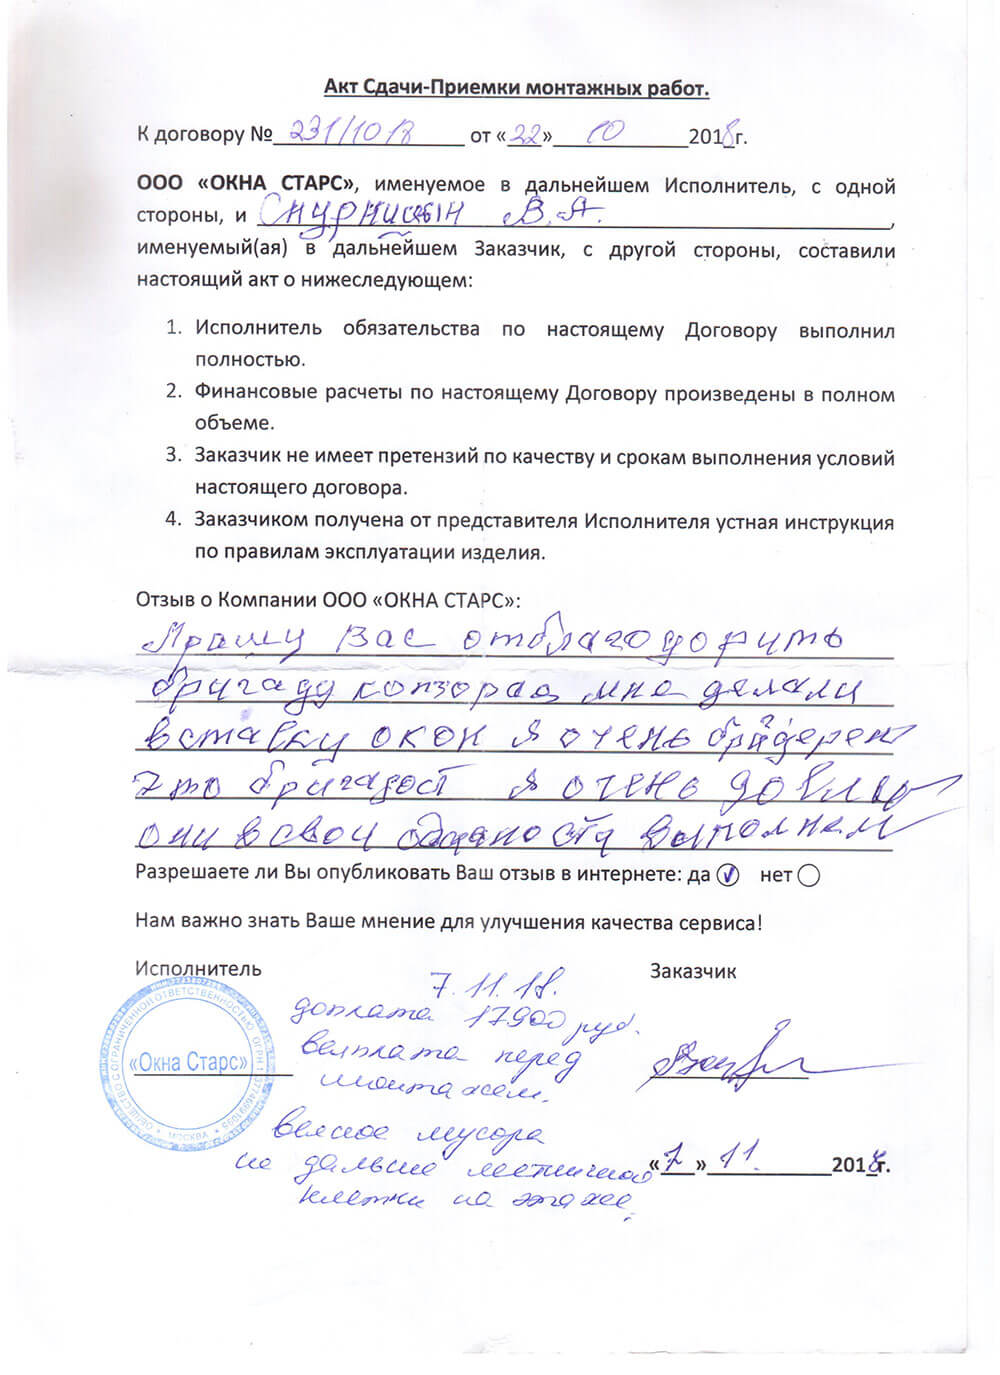 Акт Сдачи-Приемки монтажных работ.
К договору № 231/1018 от «22» 10 2018г.
ООО «ОКНА СТАРС», именуемое в дальнейшем Исполнитель, с одной
стороны, и В.А.,
именуемый(ая) в дальнейшем Заказчик, с другой стороны, составили
настоящий акт о нижеследующем:
1. Исполнитель обязательства по настоящему Договору выполнил
полностью.
2. Финансовые расчеты по настоящему Договору произведены в полном
объеме.
3. Заказчик не имеет претензий по качеству и срокам выполнения условий
настоящего договора.
4. Заказчиком получена от представителя Исполнителя устная инструкция
по правилам эксплуатации изделия.
Отзыв о Компании ООО «ОКНА СТАРС»:
Прашу Вас отблагодорить
бригаду мне делали
вставку окон я очень
это я очень
они в свои
Разрешаете ли Вы опубликовать Ваш отзыв в интернете: да нет
Нам важно знать Ваше мнение для улучшения качества сервиса!
Исполнитель Заказчик
7.11.18.
доплата 17900 руб.
выплата перед
монтажем.
вынос мусора
не дальше лестничной
клетки на этаже.
«7» 11. 2018г.
ОБЩЕСТВО С ОГРАНИЧЕННОЙ ОТВЕТСТВЕННОСТЬЮ
«Окна Старс»
МОСКВА